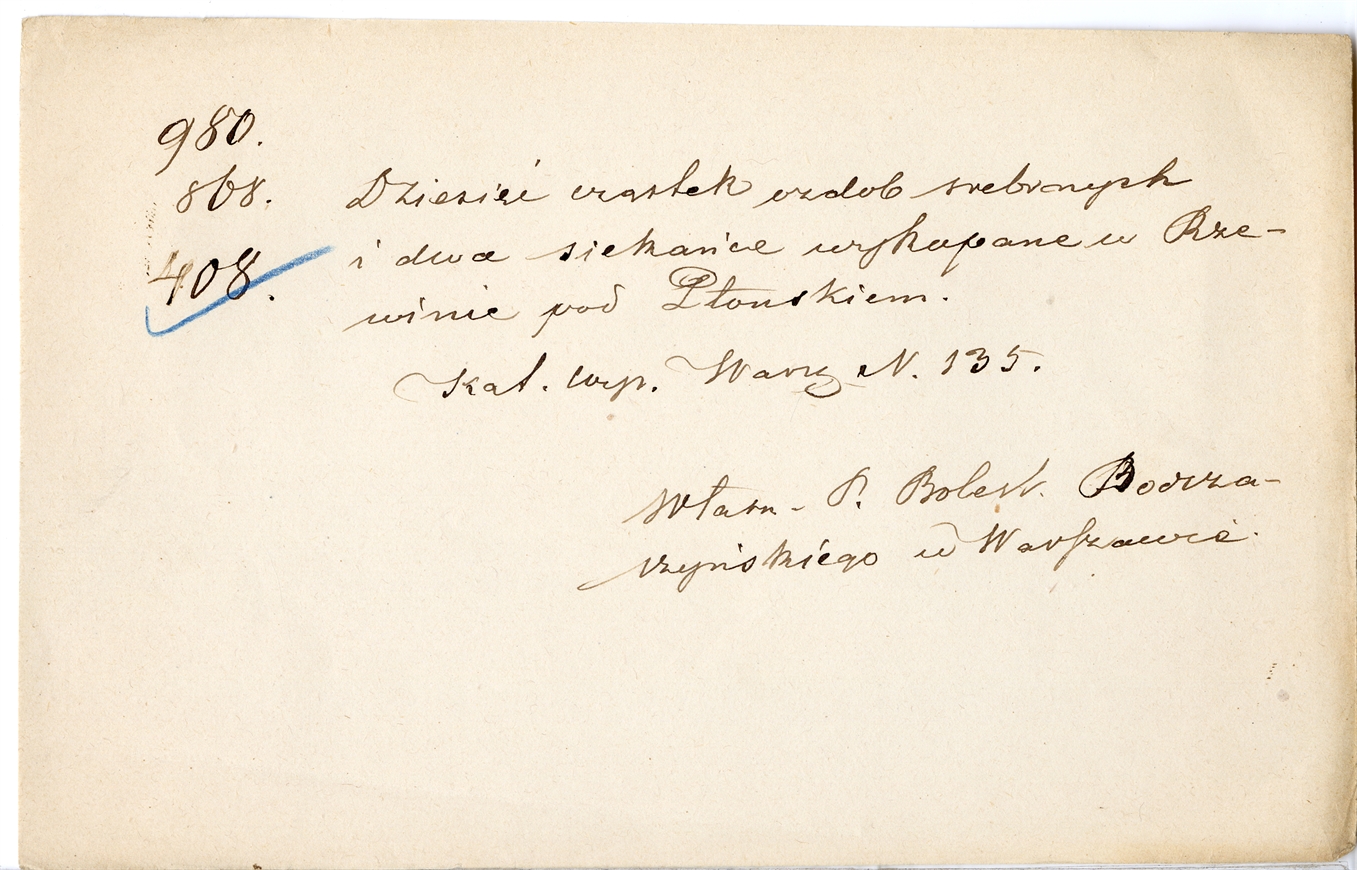 980.
868.
408.
Dziesięć cząstek ozdob srebrnych
i dwa siekańce wykopane w Rze-
winie pod Płonskiem.
Kat. wyp. Warsz N. 135.
Własn. P. Bolesł. Podcza-
szyńskiego w Warszawie.